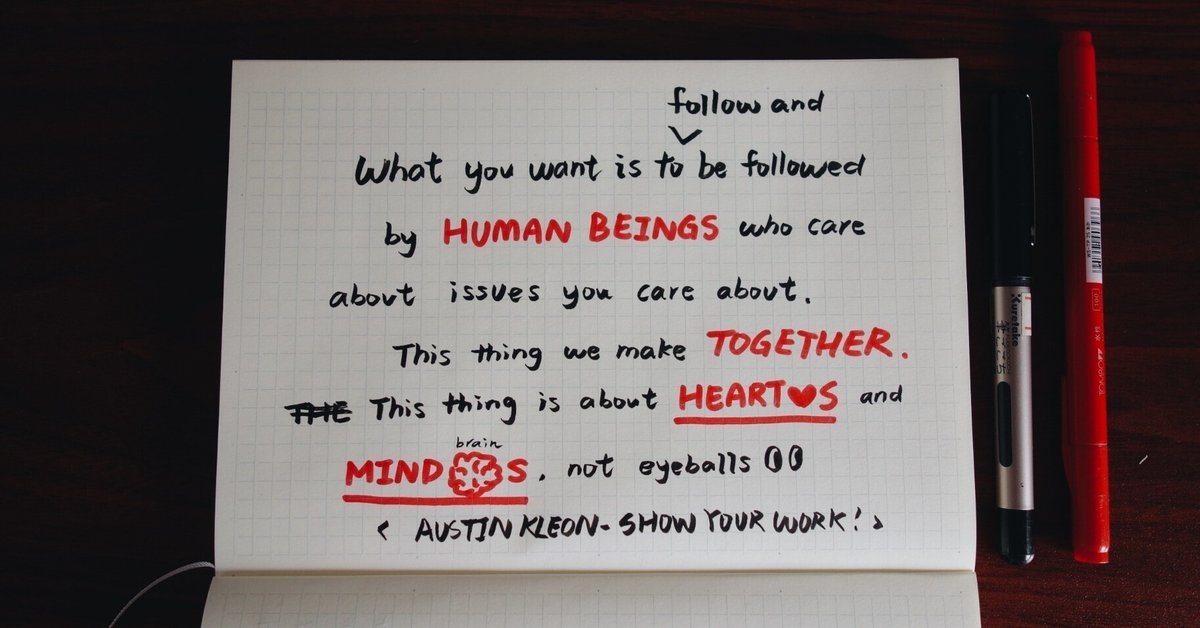 follow and
What you want is to be followed
by HUMAN BEINGS who care
about issues you care about.
This thing we make TOGETHER.
THE This thing is about HEART♥S and
brain
MINDS, not eyeballs
< AUSTIN KLEON - SHOW YOUR WORK! >
Kuretake